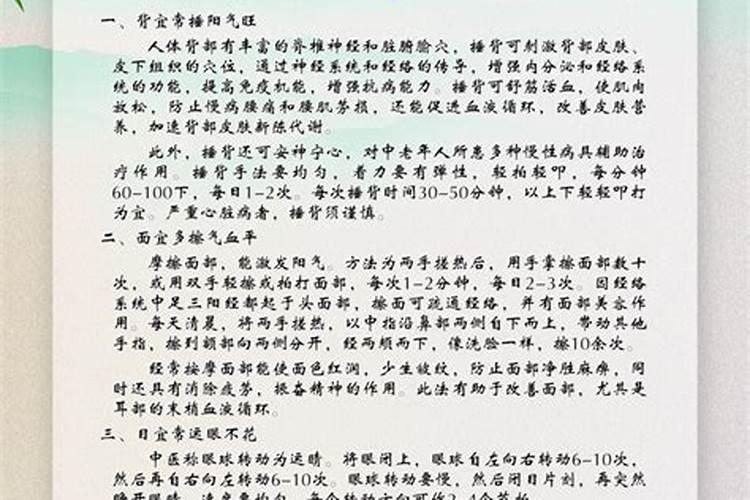 一、背宜常捶阳气旺
人体背部有丰富的脊椎神经和脏腑腧穴，捶背可刺激背部皮肤、
皮下组织的穴位，通过神经系统和经络的传导，增强内分泌和经络系
统的功能，提高免疫机能，增强抗病能力。捶背可舒筋活血，使肌肉
放松，防止慢病腰痛和腰肌劳损，还能促进血液循环，改善皮肤营
养，加速背部皮肤新陈代谢。
此外，捶背还可安神宁心，对中老年人所患多种慢性病具辅助治
疗作用。捶背手法要均匀，着力要有弹性，轻拍轻叩，每分钟
60-100下，每日1-2次。每次捶背时间30-50分钟，以上下轻轻叩打
为宜。严重心脏病者，捶背须谨慎。
二、面宜多擦气血平
摩擦面部，能激发阳气。方法为两手搓热后，用手掌擦面部数十
次，或用双手轻擦或拍打面部，每次1-2分钟，每日2-3次。因经络
系统中足三阳经都起于头面部，擦面可疏通经络，并有面部美容作
用。每天清晨，将两手搓热，以中指沿鼻部两侧自下而上，带动其他
手指，擦到额部向两侧分开，经两颊而下，像洗脸一样，擦10余次。
经常按摩面部能使面色红润，少生皱纹，防止面部净胜麻痹，同
时还具有消除疲劳，振奋精神的作用。此法有助于改善面部，尤其是
耳部的末梢血液循环。
三、目宜常运眼不花
中医称眼球转动为运睛。将眼闭上，眼球自左向右转动6-10次，
然后再自右向左转动6-10次。眼球转动要慢，然后闭目片刻，再突然
睁开眼睛，速度要均匀，每个转动方向可作2-4个节拍。